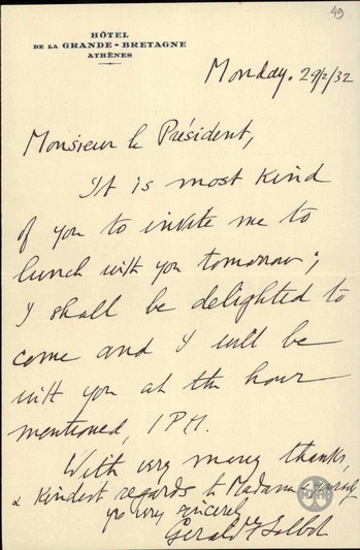 49
HÔTEL
DE LA GRANDE-BRETAGNE
ATHÈNES
Monday. 29/2/32
Monsieur le Président,
It is most kind
of you to invite me to
lunch with you tomorrow;
I shall be delighted to
come and I will be
with you at the hour
mentioned, 1 PM.
With very many thanks,
& kindest regards to Madame
yrs very sincerely
Gerald Talbot